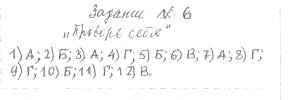 Задание № 6
„Проверь себя"
1) А; 2) Б; 3) А; 4) Г; 5) Б; 6) В; 7) А; 8) Г;
9) Г; 10) Б; 11) Г; 12) В.